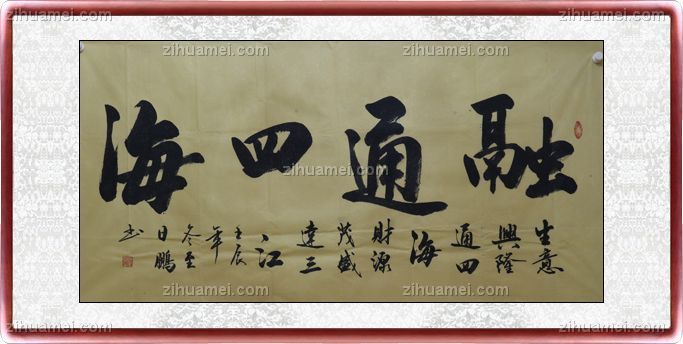 融通四海
生意
興隆
通四
海
財源
茂盛
達三
江
壬辰
年
冬至
日鵬
书
zihuamei.com
zihuamei.com
zihuamei.com
zihuamei.com
zihuamei.com
zihuamei.com
zihuamei.com
zihuamei.com
zihuamei.com
zihuamei.com
zihuamei.com
zihuamei.com